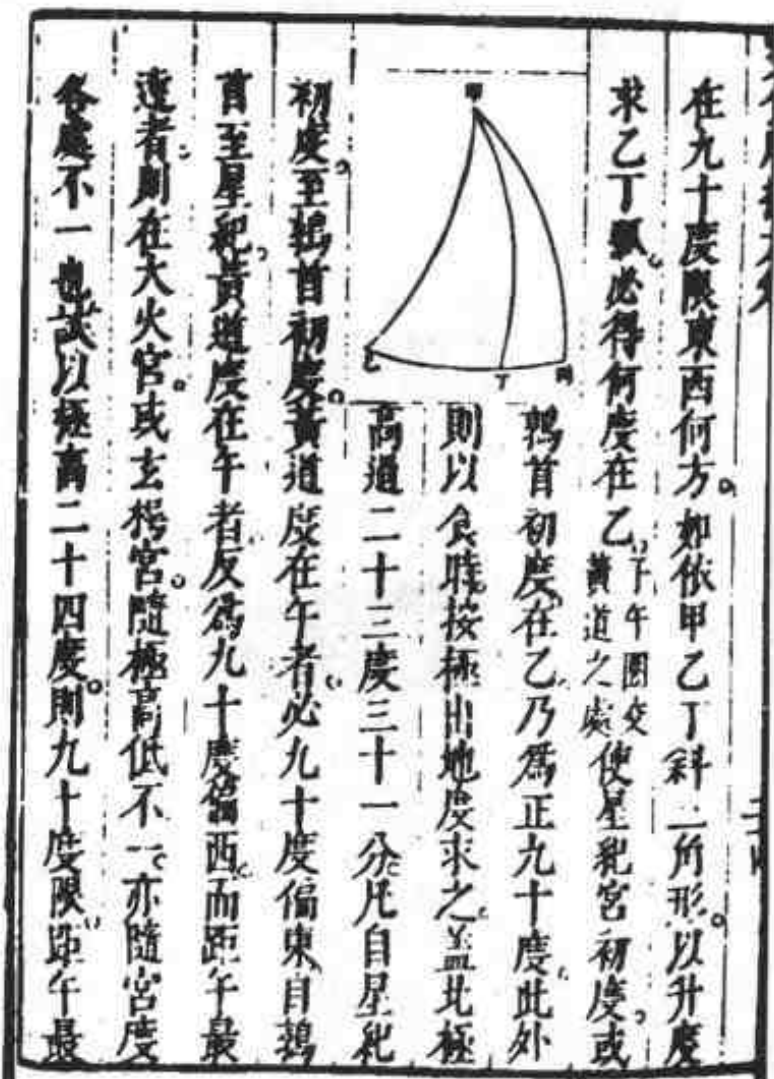 在九十度限東西何方。如依甲乙丁斜二角形。以升度
求乙丁弧。必得何度在乙。子午圈交黃道之處使星紀宮初度。或
甲
乙
丁
丙
鶉首初度在乙。乃爲正九十度。此外
則以食時。按極出地度求之。盖北極
高過二十三度三十一分。凡自星紀
初度。至鶉首初度。黃道度在午者。必九十度偏東。自鶉
首至星紀。黃道度在午者。反爲九十度偏西。而距午最
遠者。則在大火宮。或玄枵宮。隨極高低不一。亦隨宮度
各處不一也。試以極高二十四度。則九十度限。距午最